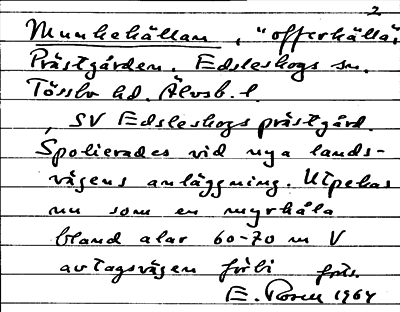 2
Munkehällan, "offerkälla",
Prästgården. Edsleskogs sn.
Tössbo hd. Älvsb. l.
, SV Edsleskogs prästgård.
Spolierades vid nya lands-
vägens anläggning. Utpekas
nu som en myrhåla
bland alar 60-70 m V
avtagsvägen förbi
E. Rosen 1964